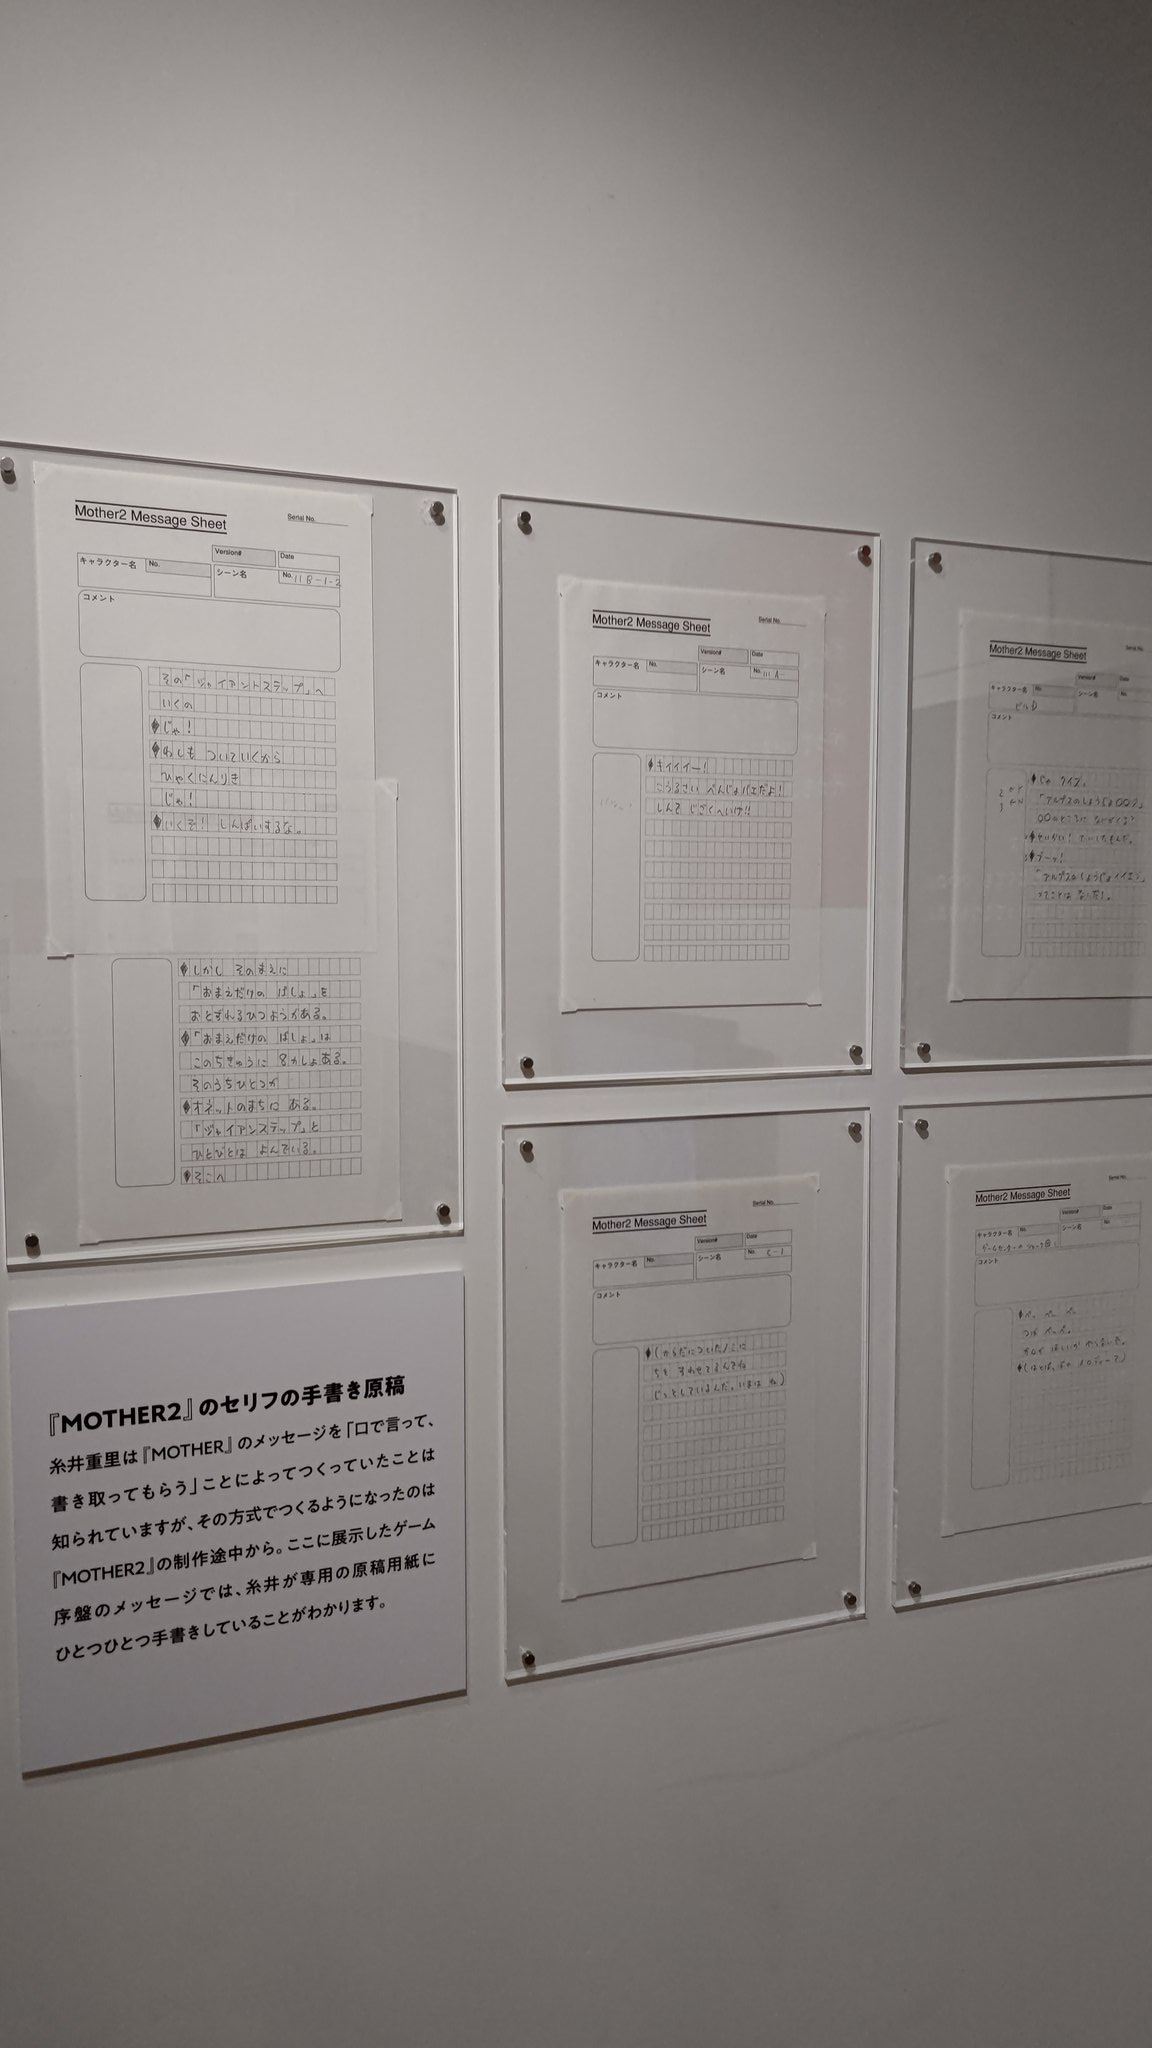 Mother2 Message Sheet
Serial No.
Version#
Date
キャラクター名
No.
シーン名
No. 118-1-2
コメント
その「ジャイアントステップ」へ
いくの
じゃ!
わしも ついていくから
ひゃくにんりき
じゃ!
いくぞ! しんぱいするな。
しかし そのまえに
「おまえだけの ばしょ」を
おとずれるひつようがある。
「おまえだけの ばしょ」は
このちきゅうに 8かしょある。
そのうちひとつが
オネットのまちに ある。
「ジャイアンステップ」と
ひとびとは よんでいる。
そこへ
『MOTHER2』のセリフの手書き原稿
糸井重里は『MOTHER』のメッセージを「口で言って、
書き取ってもらう」ことによってつくっていたことは
知られていますが、その方式でつくるようになったのは
『MOTHER2』の制作途中から。ここに展示したゲーム
序盤のメッセージでは、糸井が専用の原稿用紙に
ひとつひとつ手書きしていることがわかります。
Mother2 Message Sheet
Serial No.
Version#
Date
キャラクター名
No.
シーン名
No.
コメント
キイイイー!
こうるさい べんじょバエだよ!
しんで じごくへいけ!!
Mother2 Message Sheet
Serial No.
Version#
Date
キャラクター名
No.
シーン名
No. C-1
コメント
(からだについたノミに
ちを すわせてるんでね
じっとしているんだ。いまは ね)
Mother2 Message Sheet
Serial No.
Version#
Date
キャラクター名
No.
シーン名
No.
ビルD
コメント
じゃ クイズ。
「アルプスのしょうじょ〇〇」
〇〇のところに なにがくる?
せいかい! たいしたもんだ。
ブーッ!
「アルプスのしょうじょイイエ」
ってことは ないだろ。
Mother2 Message Sheet
Serial No.
Version#
Date
キャラクター名
No.
シーン名
No.
コメント
ペッ ペッ ペッ